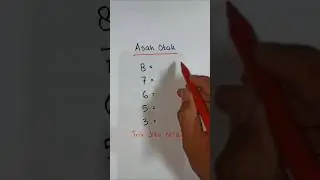 Asah Otak
8 =
7 =
6 =
5 =
3 =